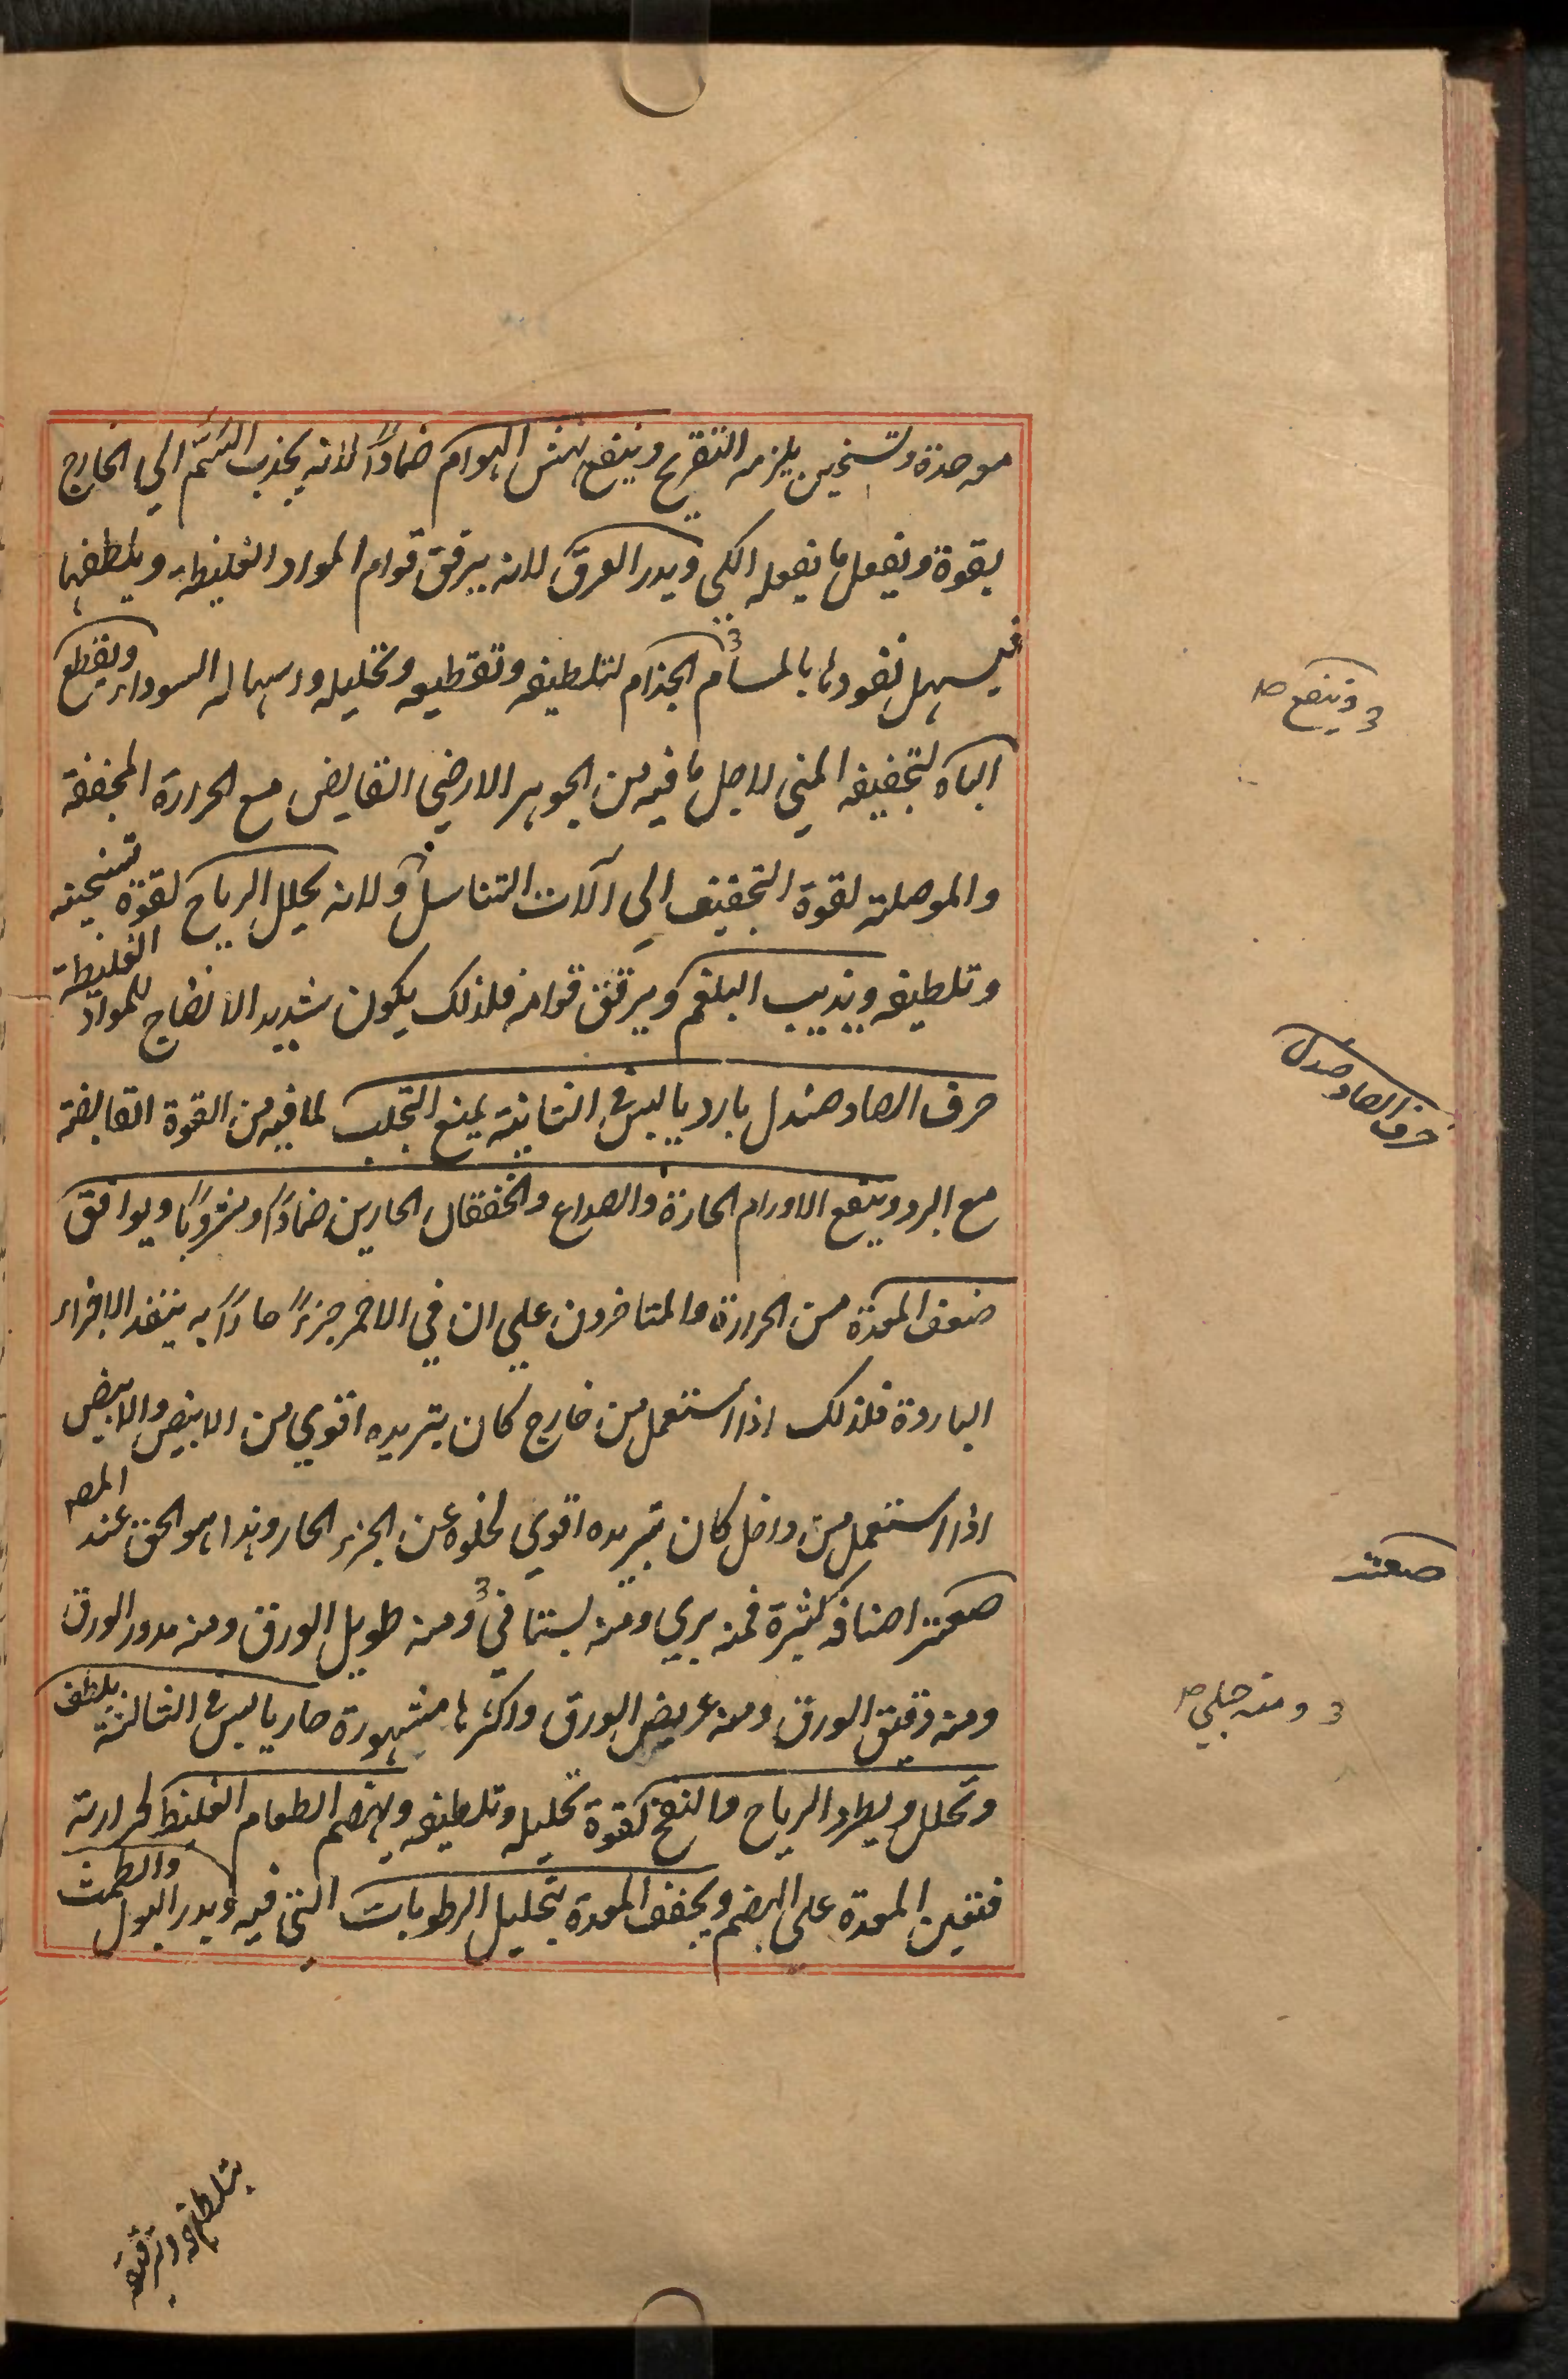 موحدة وتسخين يلزمه التقريح وينفع نهش الهوام ضماداً لانه يجذب السّم الي الخارج
بقوة ويفعل ما يفعله الكي ويدر العرق لانه يرقق قوام المواد الغليظة ويلطفها
فيسهل نفودها بالمسام 3 الجذام لتلطيفه وتقطيعه وتحليله واسهاله السوداء ويقطع
3 وينفع صح
الباه لتجفيفه المني لاجل ما فيه من الجوهر الارضي القابض مع الحرارة المجففة
والموصلة لقوة التجفيف الي آلات التناسل ولانه يحلل الرياح لقوة تسخينه
وتلطيفه ويذيب البلغم ويرقق قوامه فلذلك يكون شديد الانضاج للمواد الغليظة
حرف الصاد صندل
حرف الصاد صندل بارد يابس في الثانية يمنع التجلب لما فيه من القوة القابضة
مع البرد وينفع الاورام الحارة والصداع والخفقان الحارين ضماداً ومشروباً ويوافق
ضعف المعدة من الحرارة والمتاخرون علي ان في الاحمر جزءً حاراً به ينفذ الاجزاء
الباردة فلذلك اذا استعمل من خارج كان تبريده اقوي من الابيض والابيض
اذا استعمل من داخل كان تبريده اقوي لخلوه عن الجزء الحار وهذا هو الحق عند المص
صعتر
صعتر اصنافه كثيرة فمنه بري ومنه بستاني 3 ومنه طويل الورق ومنه مدور الورق
3 ومنه جبلي صح
ومنه دقيق الورق ومنه عريض الورق واكثرها مشهورة حار يابس في الثالثة يلطف
ويحلل ويطرد الرياح والنفخ لقوة تحليله وتلطيفه ويهضم الطعام الغليظ لحرارته
فتعين المعدة علي الهضم ويجفف المعدة بتحليل الرطوبات التي فيه ويدر البول والطمث
بتلطيفه وترقيقه